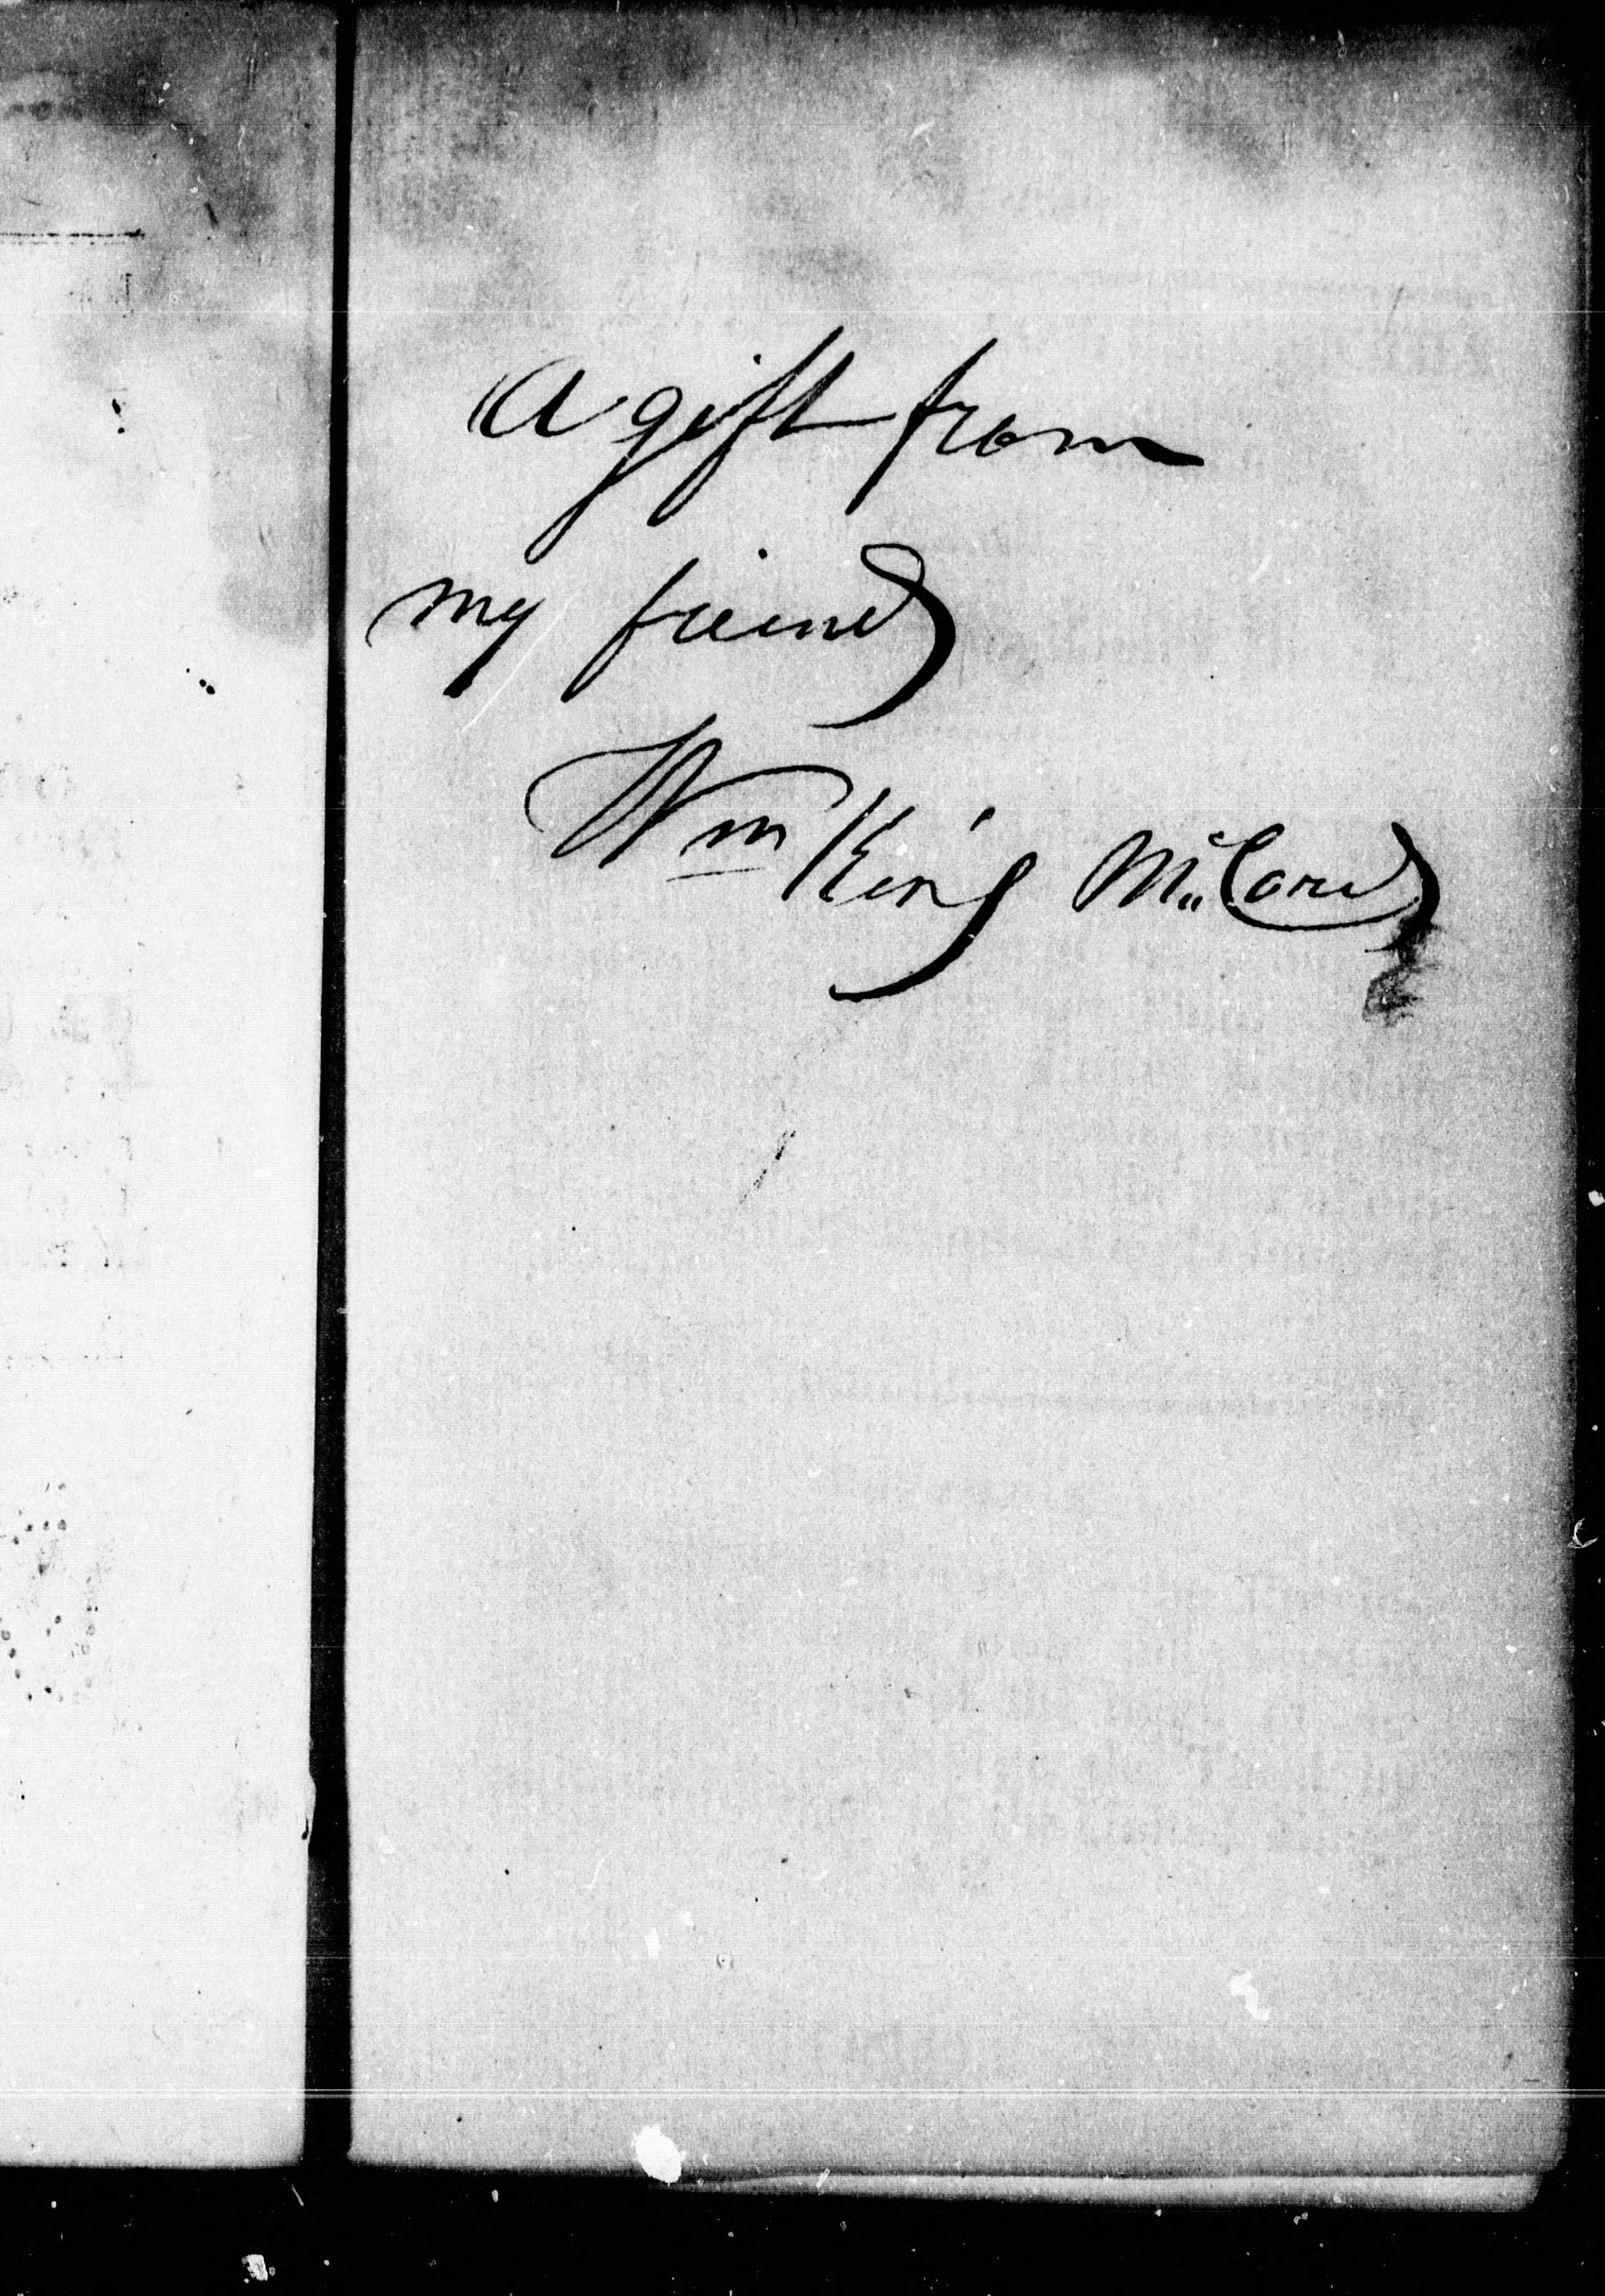 A gift from
my friend
Wm King McCord